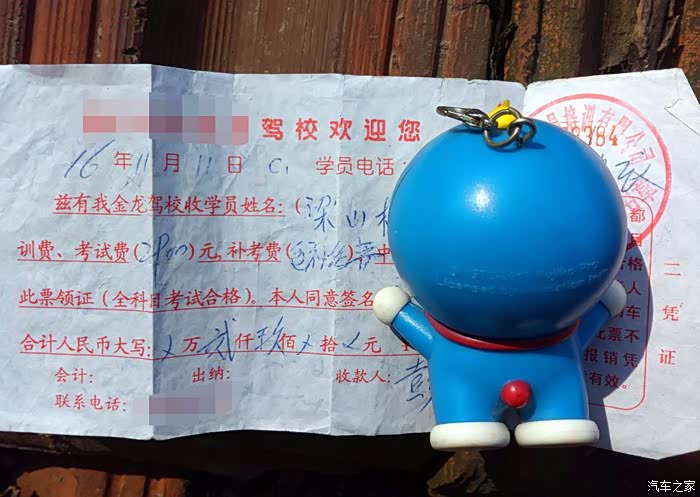 驾校欢迎您
16年11月11日 C1 学员电话:
兹有我金龙驾校收学员姓名:(梁山
训费、考试费(2900)元,补考费(包补考费)中
此票领证(全科目考试合格)。本人同意签名
合计人民币大写:×万贰仟玖佰×拾×元
会计: 出纳: 收款人:彭
联系电话:
员培训有限公司
8384
都
局
格
人
票不
报销凭
有效。
二凭证
汽车之家